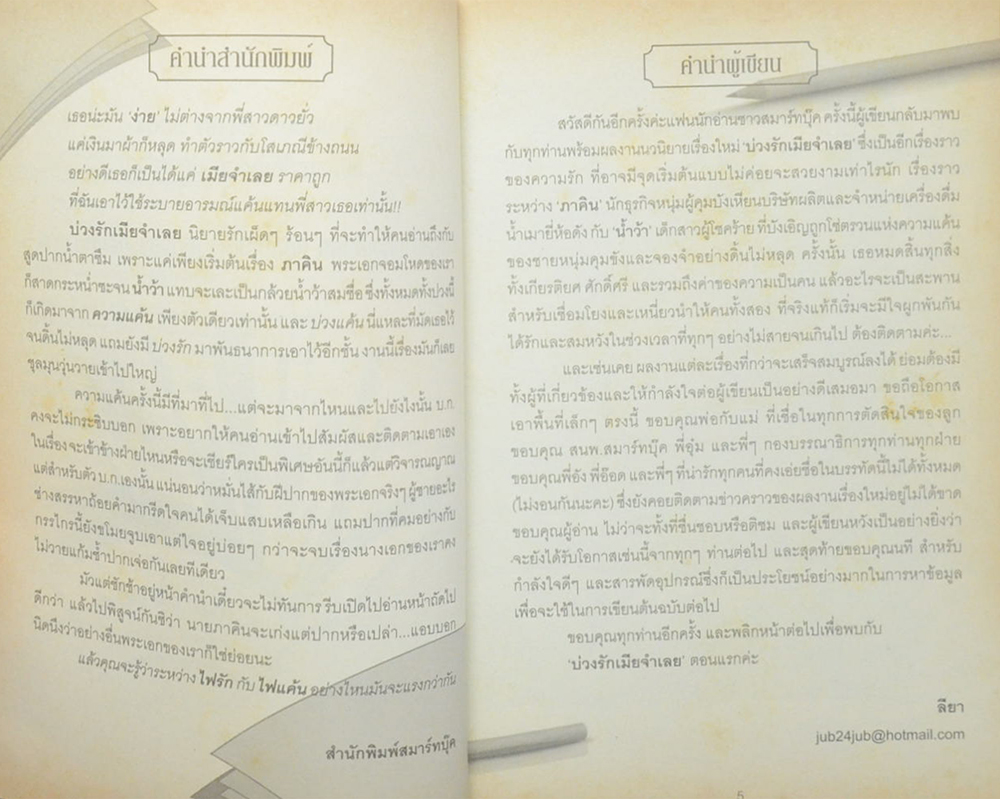 คำนำสำนักพิมพ์
เธอน่ะมัน ‘ง่าย’ ไม่ต่างจากพี่สาวดาวยั่ว
แค่เงินมาผ้าก็หลุด ทำตัวราวกับโสเภณีข้างถนน
อย่างดีเธอก็เป็นได้แค่ เมียจำเลย ราคาถูก
ที่ฉันเอาไว้ใช้ระบายอารมณ์แค้นแทนพี่สาวเธอเท่านั้น!!
บ่วงรักเมียจำเลย นิยายรักเผ็ดๆ ร้อนๆ ที่จะทำให้คนอ่านถึงกับ
สูดปากน้ำตาซึม เพราะแค่เพียงเริ่มต้นเรื่อง ภาคิน พระเอกจอมโหดของเรา
ก็สาดกระหน่ำซะจน น้ำว้า แทบจะเละเป็นกล้วยน้ำว้าสมชื่อ ซึ่งทั้งหมดทั้งปวงนี้
ก็เกิดมาจาก ความแค้น เพียงตัวเดียวเท่านั้น และ บ่วงแค้น นี่แหละที่มัดเธอไว้
จนดิ้นไม่หลุด แถมยังมี บ่วงรัก มาพันธนาการเอาไว้อีกชั้น งานนี้เรื่องมันก็เลย
ชุลมุนวุ่นวายเข้าไปใหญ่
ความแค้นครั้งนี้มีที่มาที่ไป...แต่จะมาจากไหนและไปยังไงนั้น บ.ก.
คงจะไม่กระซิบบอก เพราะอยากให้คนอ่านเข้าไปสัมผัสและติดตามเอาเอง
ในเรื่อง จะเข้าข้างฝ่ายไหนหรือจะเชียร์ใครเป็นพิเศษอันนี้ก็แล้วแต่วิจารณญาณ
แต่สำหรับตัว บ.ก.เองนั้น แน่นอนว่าหมั่นไส้กับฝีปากของพระเอกจริงๆ ผู้ชายอะไร
ช่างสรรหาถ้อยคำมากรีดใจคนได้เจ็บแสบเหลือเกิน แถมปากที่คมอย่างกับ
กรรไกรนี้ยังขโมยจูบเอาแต่ใจอยู่บ่อยๆ กว่าจะจบเรื่องนางเอกของเราคง
ไม่วายแก้มช้ำปากเจ่อกันเลยทีเดียว
มัวแต่ชักช้าอยู่หน้าคำนำเดี๋ยวจะไม่ทันการ รีบเปิดไปอ่านหน้าถัดไป
ดีกว่า แล้วไปพิสูจน์กันซิว่า นายภาคินจะเก่งแต่ปากหรือเปล่า...แอบบอก
นิดนึงว่าอย่างอื่นพระเอกของเราก็ใช่ย่อยนะ
แล้วคุณจะรู้ว่าระหว่าง ไฟรัก กับ ไฟแค้น อย่างไหนมันจะแรงกว่ากัน
สำนักพิมพ์สมาร์ทบุ๊ค
คำนำผู้เขียน
สวัสดีกันอีกครั้งค่ะแฟนนักอ่านชาวสมาร์ทบุ๊ค ครั้งนี้ผู้เขียนกลับมาพบ
กับทุกท่านพร้อมผลงานนวนิยายเรื่องใหม่ ‘บ่วงรักเมียจำเลย’ ซึ่งเป็นอีกเรื่องราว
ของความรัก ที่อาจมีจุดเริ่มต้นแบบไม่ค่อยจะสวยงามเท่าไรนัก เรื่องราว
ระหว่าง ‘ภาคิน’ นักธุรกิจหนุ่มผู้คุมบังเหียนบริษัทผลิตและจำหน่ายเครื่องดื่ม
น้ำเมายี่ห้อดัง กับ ‘น้ำว้า’ เด็กสาวผู้โชคร้าย ที่บังเอิญถูกโซ่ตรวนแห่งความแค้น
ของชายหนุ่มคุมขังและจองจำอย่างดิ้นไม่หลุด ครั้งนั้น เธอหมดสิ้นทุกสิ่ง
ทั้งเกียรติยศ ศักดิ์ศรี และรวมถึงค่าของความเป็นคน แล้วอะไรจะเป็นสะพาน
สำหรับเชื่อมโยงและเหนี่ยวนำให้คนทั้งสอง ที่จริงแท้ก็เริ่มจะมีใจผูกพันกัน
ได้รักและสมหวังในช่วงเวลาที่ทุกๆ อย่างไม่สายจนเกินไป ต้องติดตามค่ะ...
และเช่นเคย ผลงานแต่ละเรื่องที่กว่าจะเสร็จสมบูรณ์ลงได้ ย่อมต้องมี
ทั้งผู้ที่เกี่ยวข้องและให้กำลังใจต่อผู้เขียนเป็นอย่างดีเสมอมา ขอถือโอกาส
เอาพื้นที่เล็กๆ ตรงนี้ ขอบคุณพ่อกับแม่ ที่เชื่อในทุกการตัดสินใจของลูก
ขอบคุณ สนพ.สมาร์ทบุ๊ค พี่อุ๋ม และพี่ๆ กองบรรณาธิการทุกท่านทุกฝ่าย
ขอบคุณพี่อัง พี่อ๊อด และพี่ๆ ที่น่ารักทุกคนที่คงเอ่ยชื่อในบรรทัดนี้ไม่ได้ทั้งหมด
(ไม่งอนกันนะคะ) ซึ่งยังคอยติดตามข่าวคราวของผลงานเรื่องใหม่อยู่ไม่ได้ขาด
ขอบคุณผู้อ่าน ไม่ว่าจะทั้งที่ชื่นชอบหรือติชม และผู้เขียนหวังเป็นอย่างยิ่งว่า
จะยังได้รับโอกาสเช่นนี้จากทุกๆ ท่านต่อไป และสุดท้ายขอบคุณนที สำหรับ
กำลังใจดีๆ และสารพัดอุปกรณ์ซึ่งก็เป็นประโยชน์อย่างมากในการหาข้อมูล
เพื่อจะใช้ในการเขียนต้นฉบับต่อไป
ขอบคุณทุกท่านอีกครั้ง และพลิกหน้าต่อไปเพื่อพบกับ
‘บ่วงรักเมียจำเลย’ ตอนแรกค่ะ
ลียา
jub24jub@hotmail.com
5